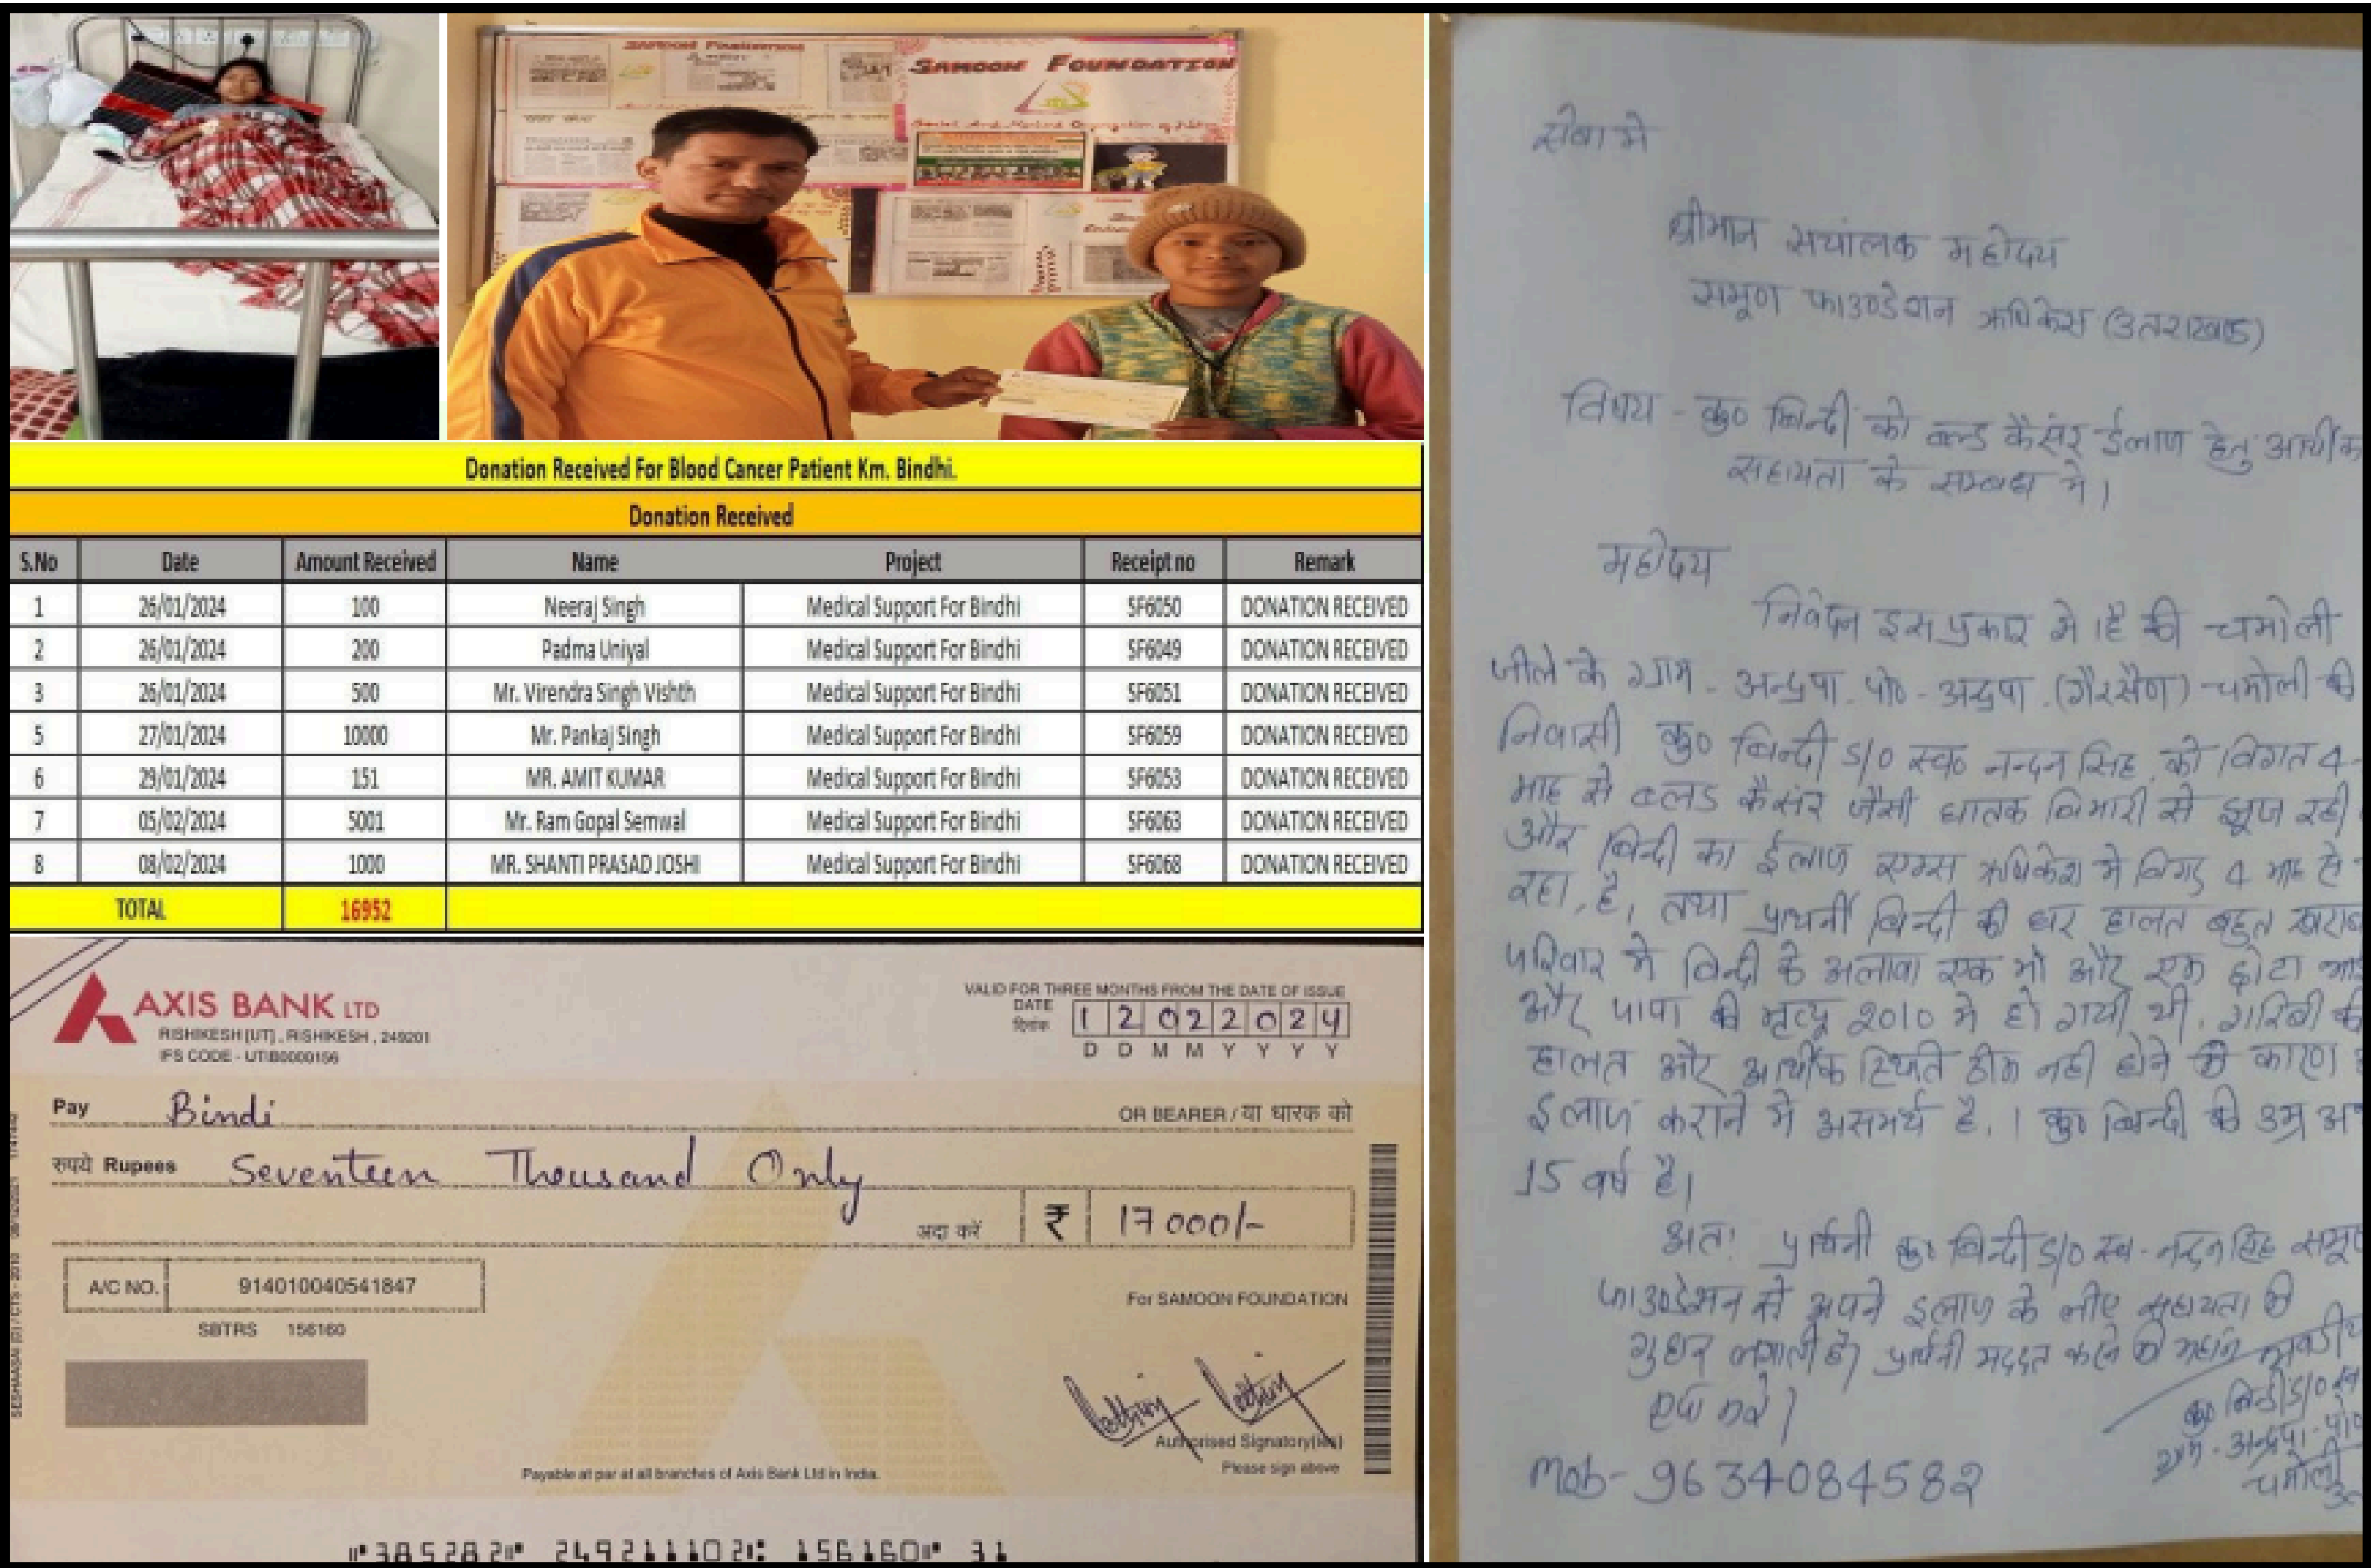 SAMOON FOUNDATION
SAMOON FOUNDATION
Donation Received For Blood Cancer Patient Km. Bindhi.
Donation Received
S.No Date Amount Received Name Project Receipt no Remark
1 26/01/2024 100 Neeraj Singh Medical Support For Bindhi SF6050 DONATION RECEIVED
2 26/01/2024 200 Padma Uniyal Medical Support For Bindhi SF6049 DONATION RECEIVED
3 26/01/2024 500 Mr. Virendra Singh Vishth Medical Support For Bindhi SF6051 DONATION RECEIVED
5 27/01/2024 10000 Mr. Pankaj Singh Medical Support For Bindhi SF6059 DONATION RECEIVED
6 29/01/2024 151 MR. AMIT KUMAR Medical Support For Bindhi SF6053 DONATION RECEIVED
7 05/02/2024 5001 Mr. Ram Gopal Semwal Medical Support For Bindhi SF6063 DONATION RECEIVED
8 08/02/2024 1000 MR. SHANTI PRASAD JOSHI Medical Support For Bindhi SF6068 DONATION RECEIVED
TOTAL 16952
AXIS BANK LTD
RISHIKESH [UT], RISHIKESH, 249201
IFS CODE - UTIB0000156
VALID FOR THREE MONTHS FROM THE DATE OF ISSUE
DATE
दिनांक 1 2 0 2 2 0 2 4
D D M M Y Y Y Y
Pay Bindi OR BEARER / या धारक को
रुपये Rupees Seventeen Thousand Only
अदा करें ₹ 17000/-
A/C NO. 914010040541847
SBTRS 156160
For SAMOON FOUNDATION
Authorised Signatory(ies)
Please sign above
Payable at par at all branches of Axis Bank Ltd in India.
⑈385282⑈ 249211102⑆ 156160⑈ 31
सेवा मे
श्रीमान संचालक महोदय
समूण फाउण्डेशन ऋषिकेश (उतराखण्ड)
विषय - कु० बिन्दी को ब्लड कैसंर ईलाज हेतु आर्थीक
सहायता के सम्बन्ध मे।
महोदय
निवेदन इस प्रकार से है की चमोली
जीले के ग्राम - अन्द्रपा पो०- अद्रपा (गैरसैण) चमोली की
निवासी कु० बिन्दी D/O स्व० नन्दन सिह को विगत 4
माह से ब्लड कैसंर जैसी घातक बिमारी से झूज रही
और बिन्दी का ईलाज एम्स ऋषिकेश मे विगत 4 माह से
रहा है, तथा प्रार्थनी बिन्दी की घर हालत बहुत खराब
परिवार मे बिन्दी के अलावा एक माँ और एक छोटा
और पापा की मृत्यू 2010 मे हो गयी थी, गरिबी की
हालत और आर्थीक स्थिति ठीक नही होने के कारण
इलाज कराने मे असमर्थ है। कु० बिन्दी की उम्र
15 वर्ष है।
अतः प्रार्थनी कु० बिन्दी D/O स्व- नन्दन सिह
फाउण्डेशन से अपने इलाज के लीए सहायता की
गुहार लगाती है। प्रार्थनी मदद करने की
कु० बिन्दी D/O स्व
ग्राम - अन्द्रपा - पो०
चमोली
Mob- 9634084582